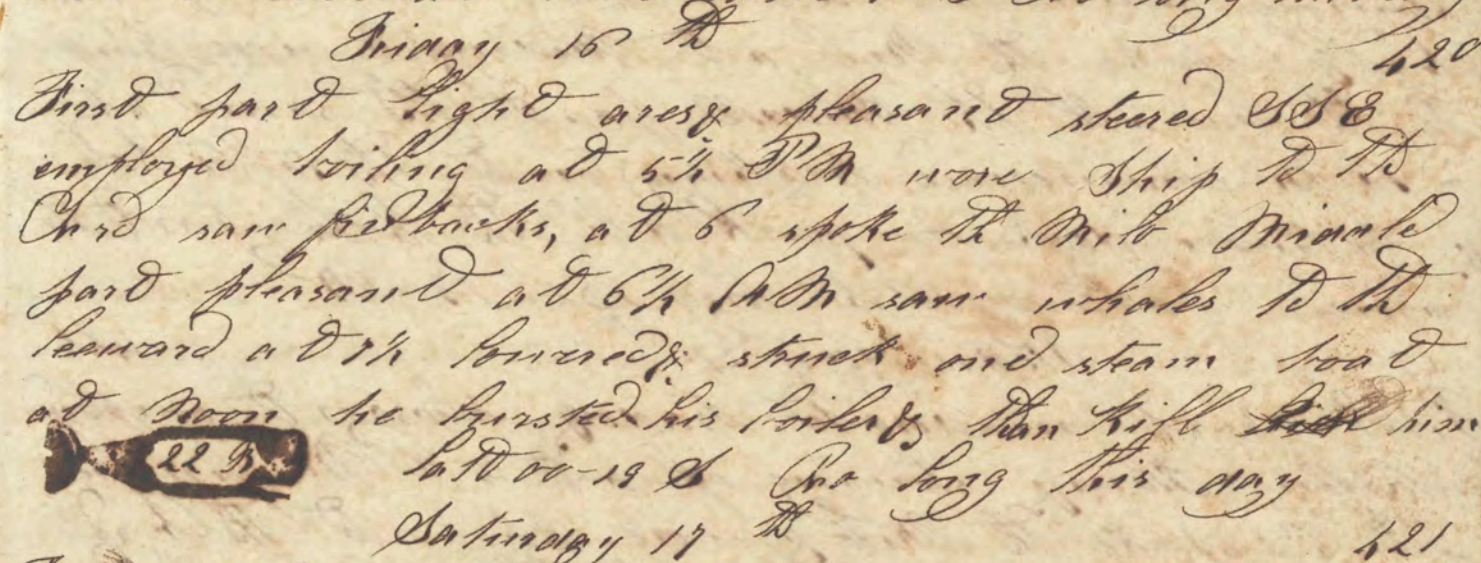 Friday 16 th
420
First part light ares & pleasant steered SSE
employed boiling at 5½ PM wore Ship to th
saw finbacks, at 6 spoke th Milo Middle
part pleasant at 6½ AM saw whales to th
leeward at 7½ lowered & struck one steam boat
at Noon he bursted his boiler & than kill him
22 B
Latt 00-19 S No long this day
Saturday 17 th
421